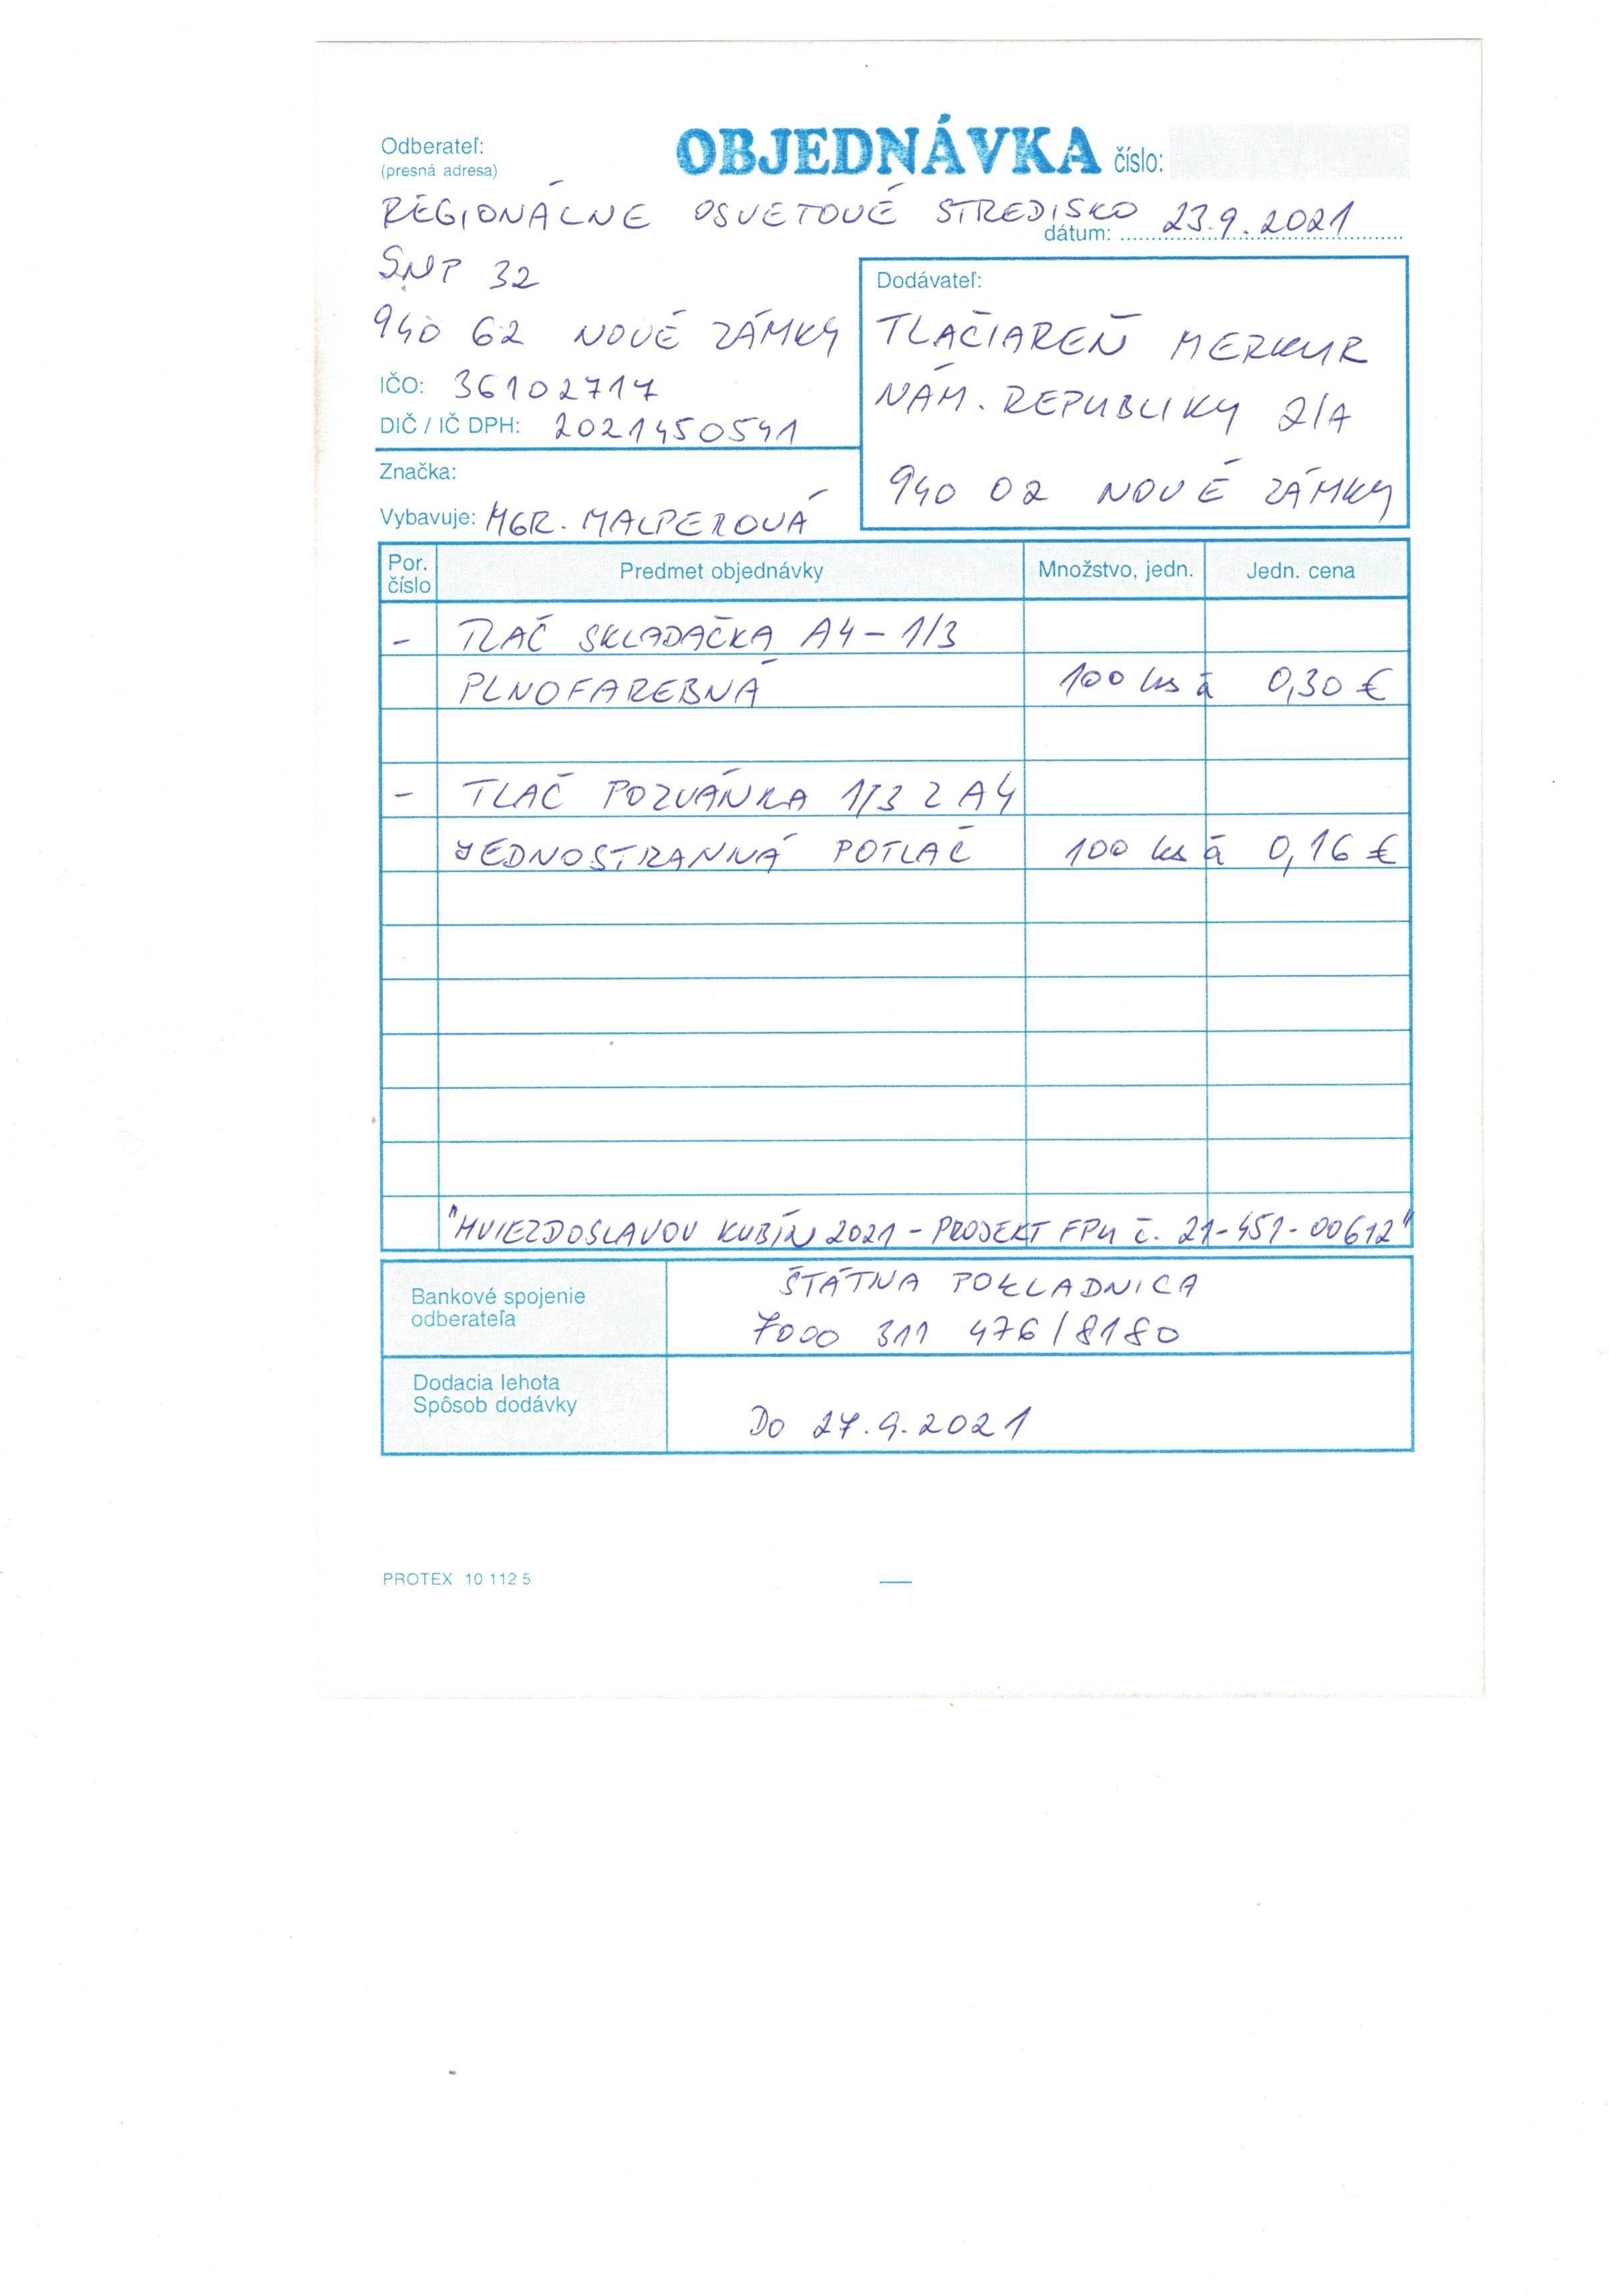 Odberateľ:
(presná adresa)
OBJEDNÁVKA číslo:
REGIONÁLNE OSVETOVÉ STREDISKO
dátum: 23.9.2021
SNP 32
940 62 NOVÉ ZÁMKY
IČO: 36102717
DIČ / IČ DPH: 2021450541
Dodávateľ:
TLAČIAREŇ MERKUR
NÁM. REPUBLIKY 2/A
940 02 NOVÉ ZÁMKY
Značka:
Vybavuje: MGR. MALPEROVÁ
Por. číslo Predmet objednávky Množstvo, jedn. Jedn. cena
- TLAČ SKLADAČKA A4 - 1/3
PLNOFAREBNÁ 100 ks á 0,30 €
- TLAČ POZVÁNKA 1/3 Z A4
JEDNOSTRANNÁ POTLAČ 100 ks á 0,16 €
"HVIEZDOSLAVOV KUBÍN 2021 - PROJEKT FPU č. 21-451-00612"
Bankové spojenie
odberateľa
ŠTÁTNA POKLADNICA
7000 311 476/8180
Dodacia lehota
Spôsob dodávky
DO 27.9.2021
PROTEX 10 112 5